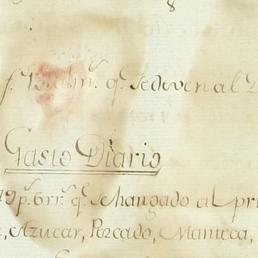 8
q.^e se deven al
Gasto Diario
19p.^s 6rr.^s q.^e se han gado al pri
, Azucar, Pescado, Manteca,